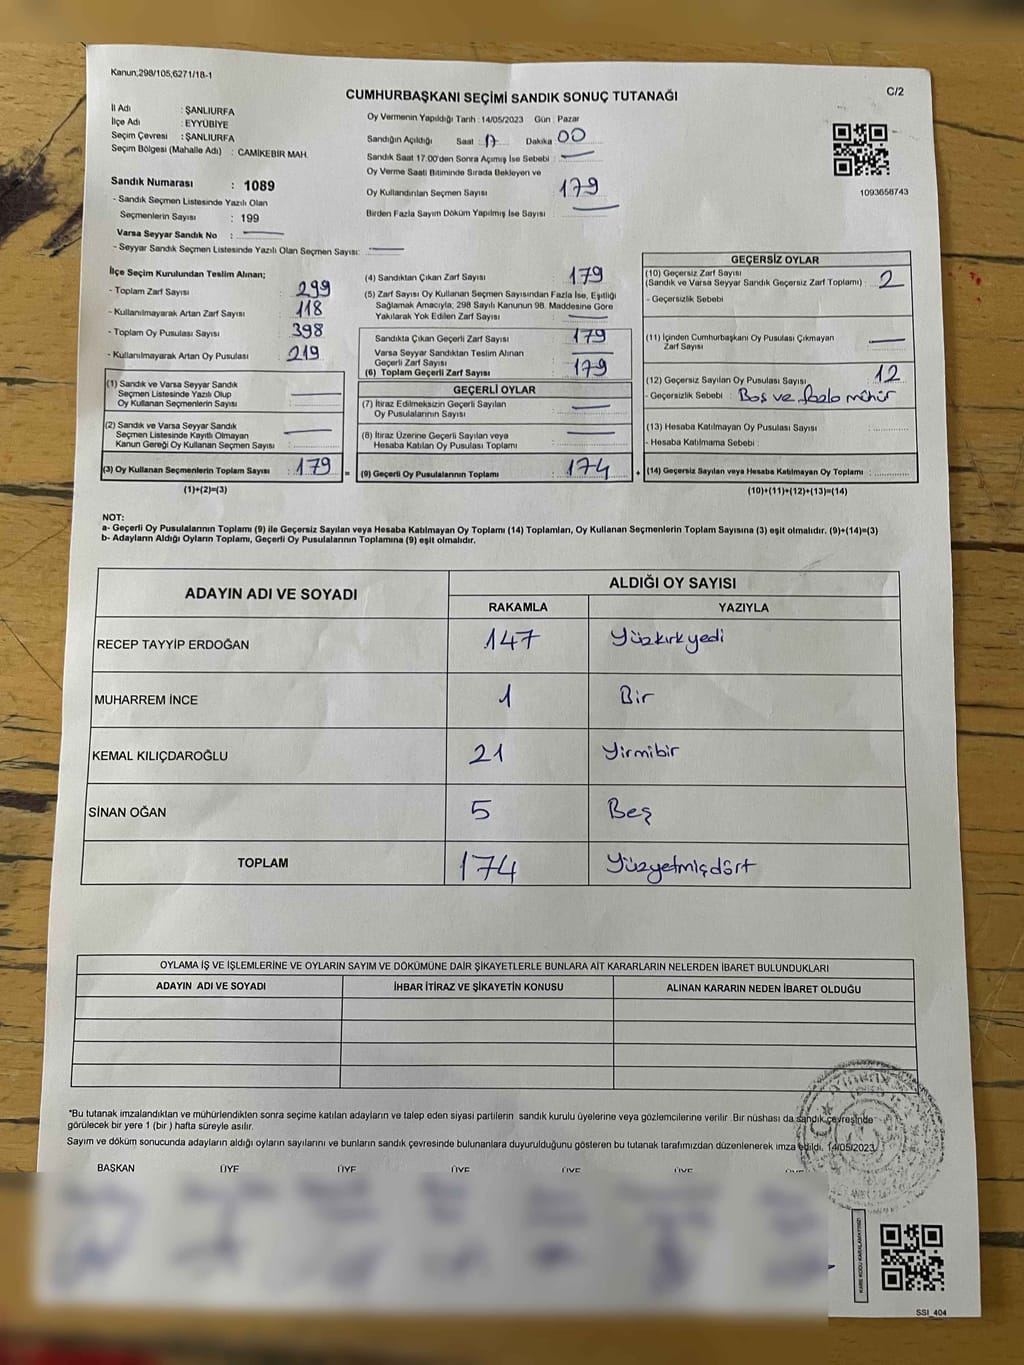 Kanun;298/105,6271/18-1
CUMHURBAŞKANI SEÇİMİ SANDIK SONUÇ TUTANAĞI
C/2
İl Adı : ŞANLIURFA
İlçe Adı : EYYÜBİYE
Seçim Çevresi : ŞANLIURFA
Seçim Bölgesi (Mahalle Adı) : CAMİKEBİR MAH.
Sandık Numarası : 1089
- Sandık Seçmen Listesinde Yazılı Olan
Seçmenlerin Sayısı : 199
Varsa Seyyar Sandık No :
- Seyyar Sandık Seçmen Listesinde Yazılı Olan Seçmen Sayısı:
Oy Vermenin Yapıldığı Tarih : 14/05/2023 Gün : Pazar
Sandığın Açıldığı Saat : 17 Dakika 00
Sandık Saat 17.00'den Sonra Açımış İse Sebebi :
Oy Verme Saati Bitiminde Sırada Bekleyen ve
Oy Kullandırılan Seçmen Sayısı : 179
Birden Fazla Sayım Döküm Yapılmış İse Sayısı :
1093656743
İlçe Seçim Kurulundan Teslim Alınan;
- Toplam Zarf Sayısı : 299
- Kullanılmayarak Artan Zarf Sayısı : 118
- Toplam Oy Pusulası Sayısı : 398
- Kullanılmayarak Artan Oy Pusulası : 219
(1) Sandık ve Varsa Seyyar Sandık
Seçmen Listesinde Yazılı Olup
Oy Kullanan Seçmenlerin Sayısı :
(2) Sandık ve Varsa Seyyar Sandık
Seçmen Listesinde Kayıtlı Olmayan
Kanun Gereği Oy Kullanan Seçmen Sayısı :
(3) Oy Kullanan Seçmenlerin Toplam Sayısı : 179
(1)+(2)=(3)
(4) Sandıktan Çıkan Zarf Sayısı : 179
(5) Zarf Sayısı Oy Kullanan Seçmen Sayısından Fazla İse, Eşitliği
Sağlamak Amacıyla; 298 Sayılı Kanunun 98. Maddesine Göre
Yakılarak Yok Edilen Zarf Sayısı :
Sandıkta Çıkan Geçerli Zarf Sayısı : 179
Varsa Seyyar Sandıktan Teslim Alınan
Geçerli Zarf Sayısı :
(6) Toplam Geçerli Zarf Sayısı : 179
GEÇERLİ OYLAR
(7) İtiraz Edilmeksizin Geçerli Sayılan
Oy Pusulalarının Sayısı :
(8) İtiraz Üzerine Geçerli Sayılan veya
Hesaba Katılan Oy Pusulası Sayısı :
= (9) Geçerli Oy Pusulalarının Toplamı : 174 +
GEÇERSİZ OYLAR
(10) Geçersiz Zarf Sayısı
(Sandık ve Varsa Seyyar Sandık Geçersiz Zarf Toplamı) : 2
- Geçersizlik Sebebi :
(11) İçinden Cumhurbaşkanı Oy Pusulası Çıkmayan
Zarf Sayısı :
(12) Geçersiz Sayılan Oy Pusulası Sayısı : 12
- Geçersizlik Sebebi : Boş ve fazla mühür
(13) Hesaba Katılmayan Oy Pusulası Sayısı :
- Hesaba Katılmama Sebebi :
(14) Geçersiz Sayılan veya Hesaba Katılmayan Oy Toplamı :
(10)+(11)+(12)+(13)=(14)
NOT:
a- Geçerli Oy Pusulalarının Toplamı (9) ile Geçersiz Sayılan veya Hesaba Katılmayan Oy Toplamı (14) Toplamları, Oy Kullanan Seçmenlerin Toplam Sayısına (3) eşit olmalıdır. (9)+(14)=(3)
b- Adayların Aldığı Oyların Toplamı, Geçerli Oy Pusulalarının Toplamına (9) eşit olmalıdır.
ADAYIN ADI VE SOYADI ALDIĞI OY SAYISI
RAKAMLA YAZIYLA
RECEP TAYYİP ERDOĞAN 147 Yüzkırkyedi
MUHARREM İNCE 1 Bir
KEMAL KILIÇDAROĞLU 21 Yirmibir
SİNAN OĞAN 5 Beş
TOPLAM 174 Yüzyetmişdört
OYLAMA İŞ VE İŞLEMLERİNE VE OYLARIN SAYIM VE DÖKÜMÜNE DAİR ŞİKAYETLERLE BUNLARA AİT KARARLARIN NELERDEN İBARET BULUNDUKLARI
ADAYIN ADI VE SOYADI İHBAR İTİRAZ VE ŞİKAYETİN KONUSU ALINAN KARARIN NEDEN İBARET OLDUĞU
*Bu tutanak imzalandıktan ve mühürlendikten sonra seçime katılan adayların ve talep eden siyasi partilerin sandık kurulu üyelerine veya gözlemcilerine verilir .Bir nüshası da sandık çevresinde
görülecek bir yere 1 (bir ) hafta süreyle asılır.
Sayım ve döküm sonucunda adayların aldığı oyların sayılarını ve bunların sandık çevresinde bulunanlara duyurulduğunu gösteren bu tutanak tarafımızdan düzenlenerek imza edildi. 14/05/2023
BAŞKAN ÜYE ÜYE ÜYE ÜYE ÜYE
KARE KODU KARALAMAYINIZ!
SSI_404